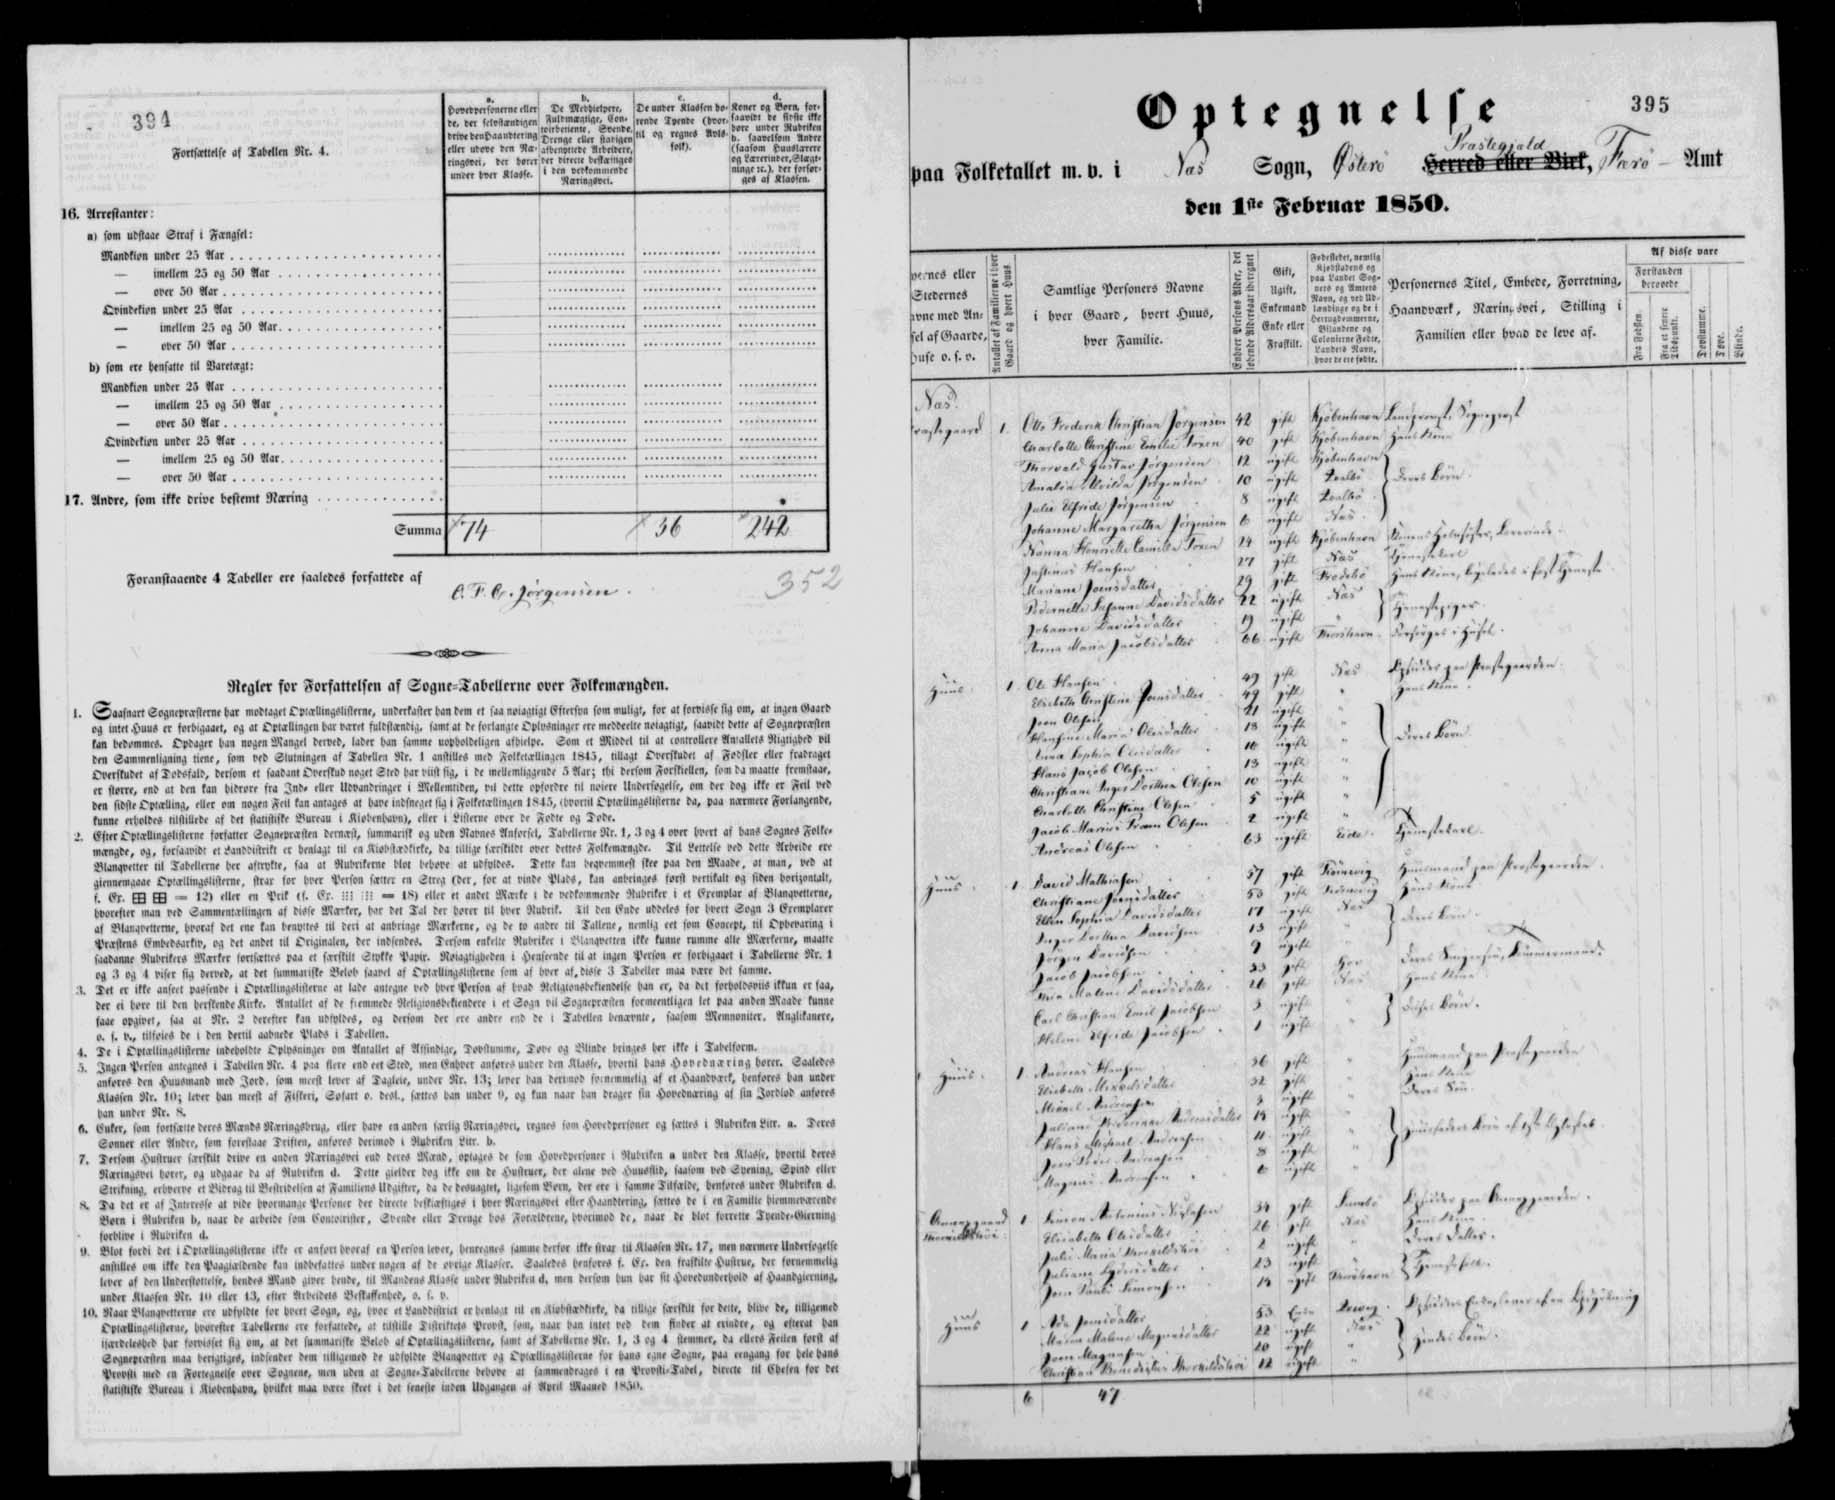 394
Fortsættelse af Tabellen Nr. 4.
a.
Hovedpersonerne eller
de, der selvstændigen
drive den Haandtering
eller udøve den Næ-
ringsvei, der hører
under hver Klasse.
b.
De Medhielpere,
Fuldmægtige, Con-
toirbetiente, Svende,
Drenge eller stadigen
afbenyttede Arbeidere,
der directe beskæftiges
i den vedkommende
Næringsvei.
c.
De under Klassen hø-
rende Tyende (hvor-
til og regnes Avls-
folk).
d.
Koner og Børn, for-
saavidt de sidste ikke
høre under Rubriken
b. saavelsom Andre
(saasom Huuslærere
og Lærerinder, Slægt-
ninge ꝛc.), der forsør-
ges af Klassen.
16. Arrestanter:
a) som udstaae Straf i Fængsel:
Mandkiøn under 25 Aar
— imellem 25 og 50 Aar
— over 50 Aar
Qvindekiøn under 25 Aar
— imellem 25 og 50 Aar
— over 50 Aar
b) som ere hensatte til Varetægt:
Mandkiøn under 25 Aar
— imellem 25 og 50 Aar
— over 50 Aar
Qvindekiøn under 25 Aar
— imellem 25 og 50 Aar
— over 50 Aar
17. Andre, som ikke drive bestemt Næring
Summa 74 36 242
Foranstaaende 4 Tabeller ere saaledes forfattede af
O. F. C. Jørgensen.
352
Regler for Forfattelsen af Sogne-Tabellerne over Folkemængden.
1. Saasnart Sognepræsterne har modtaget Optællingslisterne, underkaster han dem et saa nøiagtigt Eftersyn som muligt, for at forvisse sig om, at ingen Gaard
og intet Huus er forbigaaet, og at Optællingen har været fuldstændig, samt at de forlangte Oplysninger ere meddeelte nøiagtigt, saavidt dette af Sognepræsten
kan bedømmes. Opdager han nogen Mangel derved, lader han samme uopholdeligen afhielpe. Som et Middel til at controllere Antallets Rigtighed vil
den Sammenligning tiene, som ved Slutningen af Tabellen Nr. 1 anstilles med Folketællingen 1845, tillagt Overskudet af Fødsler eller fradraget
Overskudet af Dødsfald, dersom et saadant Overskud noget Sted har viist sig, i de mellemliggende 5 Aar; thi dersom Forskiellen, som da maatte fremstaae,
er større, end at den kan hidrøre fra Ind- eller Udvandringer i Mellemtiden, vil dette opfordre til nøiere Undersøgelse, om der dog ikke er Feil ved
den sidste Optælling, eller om nogen Feil kan antages at have indsneget sig i Folketællingen 1845, (hvortil Optællingslisterne da, paa nærmere Forlangende,
kunne erholdes tilstillede af det statistiske Bureau i Kiøbenhavn), eller i Listerne over de Fødte og Døde.
2. Efter Optællingslisterne forfatter Sognepræsten dernæst, summarisk og uden Navnes Anførsel, Tabellerne Nr. 1, 3 og 4 over hvert af hans Sognes Folke-
mængde, og, forsaavidt et Landdistrikt er henlagt til en Kiøbstædkirke, da tillige særskildt over dettes Folkemængde. Til Lettelse ved dette Arbeide ere
Blanqvetter til Tabellerne her aftrykte, saa at Rubrikerne blot behøve at udfyldes. Dette kan beqvemmest skee paa den Maade, at man, ved at
giennemgaae Optællingslisterne, strax for hver Person sætter en Streg (der, for at vinde Plads, kan anbringes først vertikalt og siden horizontalt,
f. Ex. ⊞ ⊞ = 12) eller en Prik (f. Ex. ⁝⁝⁝ ⁝⁝⁝ = 18) eller et andet Mærke i de vedkommende Rubriker i et Exemplar af Blanqvetterne,
hvorefter man ved Sammentællingen af disse Mærker, har det Tal der hører til hver Rubrik. Til den Ende uddeles for hvert Sogn 3 Exemplarer
af Blanqvetterne, hvoraf det ene kan benyttes til deri at anbringe Mærkerne, og de to andre til Tallene, nemlig eet som Concept, til Opbevaring i
Præstens Embedsarkiv, og det andet til Originalen, der indsendes. Dersom enkelte Rubriker i Blanqvetten ikke kunne rumme alle Mærkerne, maatte
saadanne Rubrikers Mærker fortsættes paa et særskilt Stykke Papir. Nøiagtigheden i Henseende til at ingen Person er forbigaaet i Tabellerne Nr. 1
og 3 og 4 viser sig derved, at det summariske Beløb saavel af Optællingslisterne som af hver af disse 3 Tabeller maa være det samme.
3. Det er ikke anseet passende i Optællingslisterne at lade antegne ved hver Person af hvad Religionsbekiendelse han er, da det forholdsviis ikkun er faa,
der ei høre til den herskende Kirke. Antallet af de fremmede Religionsbekiendere i et Sogn vil Sognepræsten formeentligen let paa anden Maade kunne
faae opgivet, saa at Nr. 2 derefter kan udfyldes, og dersom der ere andre end de i Tabellen benævnte, saasom Memnoniter, Anglikanere,
o. s. v., tilføies de i den dertil aabnede Plads i Tabellen.
4. De i Optællingslisterne indeholdte Oplysninger om Antallet af Afsindige, Døvstumme, Døve og Blinde bringes her ikke i Tabelform.
5. Ingen Person antegnes i Tabellen Nr. 4 paa flere end eet Sted, men Enhver anføres under den Klasse, hvortil hans Hovednæring hører. Saaledes
anføres den Huusmand med Jord, som meest lever af Dagleie, under Nr. 13; lever han derimod fornemmelig af et Haandværk, henføres han under
Klassen Nr. 10; lever han meest af Fiskeri, Søfart o. desl., sættes han under 9, og kun naar han drager sin Hovednæring af sin Jordlod anføres
han under Nr. 8.
6. Enker, som fortsætte deres Mænds Næringsbrug, eller have en anden særlig Næringsvei, regnes som Hovedpersoner og sættes i Rubriken Litr. a. Deres
Sønner eller Andre, som forestaae Driften, anføres derimod i Rubriken Litr. b.
7. Dersom Hustruer særskilt drive en anden Næringsvei end deres Mænd, optages de som Hovedpersoner i Rubriken a under den Klasse, hvortil deres
Næringsvei hører, og udgaae da af Rubriken d. Dette gielder dog ikke om de Hustruer, der alene ved Huusflid, saasom ved Syening, Spind eller
Strikning, erhverve et Bidrag til Bestridelsen af Familiens Udgifter, da de desuagtet, ligesom Børn, der ere i samme Tilfælde, henføres under Rubriken d.
8. Da det er af Interesse at vide hvormange Personer der directe beskæftiges i hver Næringsvei eller Haandtering, sættes de i en Familie hiemmeværende
Børn i Rubriken b, naar de arbeide som Contoirister, Svende eller Drenge hos Forældrene, hvorimod de, naar de blot forrette Tyende-Gierning
forblive i Rubriken d.
9. Blot fordi det i Optællingslisterne ikke er anført hvoraf en Person lever, henregnes samme derfor ikke strax til Klassen Nr. 17, men nærmere Undersøgelse
anstilles om ikke den Paagiældende kan indbefattes under nogen af de øvrige Klasser. Saaledes henføres f. Ex. den fraskilte Hustrue, der fornemmelig
lever af den Understøttelse, hendes Mand giver hende, til Mandens Klasse under Rubriken d, men dersom hun har sit Hovedunderhold af Haandgierning,
under Klassen Nr. 10 eller 13, efter Arbeidets Beskaffenhed, o. s. v.
10. Naar Blanqvetterne ere udfyldte for hvert Sogn, og, hvor et Landdistrict er henlagt til en Kiøbstædkirke, da tillige særskilt for dette, blive de, tilligemed
Optællingslisterne, hvorefter Tabellerne ere forfattede, at tilstille Distriktets Provst, som, naar han intet ved dem finder at erindre, og efterat han
især deleshed har forvisset sig om, at det summariske Beløb af Optællingslisterne, samt af Tabellerne Nr. 1, 3 og 4 stemmer, da ellers Feilen først af
Sognepræsten maa berigtiges, indsender dem tilligemed de udfyldte Blanqvetter og Optællingslisterne for hans egne Sogne, paa eengang for hele hans
Provsti med en Fortegnelse over Sognene, men uden at Sogne-Tabellerne behøve at sammendrages i en Provsti-Tabel, directe til Chefen for det
statistiske Bureau i Kiøbenhavn, hvilket maa være skeet i det seneste inden Udgangen af April Maaned 1850.
Optegnelse 395
Præstegjeld
paa Folketallet m. v. i Næs Sogn, Østerö Herred eller Birk, Færö Amt
den 1ste Februar 1850.
Stedernes
Samtlige Personers Navne
i hver Gaard, hvert Huus,
hver Familie.
Gift,
Ugift,
Enkemand
Enke eller
Fraskilt.
Fødestedet, nemlig
Kjøbstadens og
paa Landet Sog-
nets og Amtets
Navn, og ved Ud-
lændinge og de i
Hertugdømmerne,
Bilandene og
Colonierne Fødte,
Landets Navn,
hvor de ere fødte.
Personernes Titel, Embede, Forretning,
Haandværk, Næringsvei, Stilling i
Familien eller hvad de leve af.
Af disse vare
Forstanden
berøvede
Fra Fødslen.
Fra et senere
Tidspunkt.
Døvstumme.
Døve.
Blinde.
Næs.
1. Otto Frederik Christian Jørgensen 42 gift Kjöbenhavn Sognepræst
Charlotte Christine Emilie Toxen 40 gift Kjöbenhavn Hans Kone
Thorvald Gustav Jørgensen 12 ugift Kjöbenhavn
Amalia Alvilda Jørgensen 10 ugift Deres Börn
Julie Elfride Jørgensen 8 ugift
Johanne Margaretha Jørgensen 6 ugift Næs
Nanna Henriette Camilla Toxen 24 ugift Kjöbenhavn
Hansen 27 gift Næs Tjenestekarl
Mariane Joensdatter 29 gift
Susanne Davidsdatter 22 ugift Næs
Johanne Davidsdatter 19 ugift Tjenestepiger
Anna Maria Jacobsdatter 66 ugift Thorshavn
Huus. 1. Ole Hansen 49 gift Næs
Elsebeth Christine Joensdatter 49 gift Hans Kone
Joen Olesen 21 ugift
Hansine Maria Olesdatter 18 ugift Deres Börn
Anna Sophia Olesdatter 16 ugift
Hans Jacob Olesen 13 ugift
Christiane Inger Dorthea Olesen 10 ugift
Charlotte Christine Olesen 5 ugift
Jacob Marius Olesen 2 ugift
Andreas Olesen 63 ugift Eide Tjenestekarl
Huus 1 David Mathiasen 57 gift Huusmand paa Præstegaarden
Christiane Joensdatter 53 gift Hans Kone
Ellen Sophia Davidsdatter 17 ugift Næs
Inger Dorthea Davidsen 13 ugift Deres Börn
Jørgen Davidsen 9 ugift
Jacob Jacobsen 33 gift Deres Svigersön, Tömmermand
Malene Davidsdatter 26 gift Næs Hans Kone
Carl Christian Emil Jacobsen 3 ugift Disses Börn
Helene Elfride Jacobsen 1 ugift
Huus. 1. Andreas Hansen 36 gift Huusmand paa Præstegaarden
Elsebeth 32 gift Hans Kone
Andreasen 3 ugift Deres Sön
Juliane Andreasdatter 14 ugift
Hans Michael Andreasen 11 ugift
Joen Andreasen 8 ugift
Magnus Andreasen 6 ugift
1 Simon Antonius 34 gift
Elisabeth Olesdatter 26 gift Næs Hans Kone
Julie Maria 2 ugift Deres Datter
Juliane 23 ugift
Joen Simonsen 14 ugift Thorshavn
Huus 1 Ada Joensdatter 53 Enke
Maren Malene Magnusdatter 22 ugift Næs
Joen Magnusen 20 ugift Hendes Börn
Christian Benedictus 12 ugift
6 47